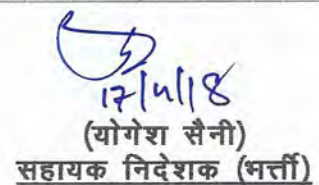 17/4/18
(योगेश सैनी)
सहायक निदेशक (भर्ती)